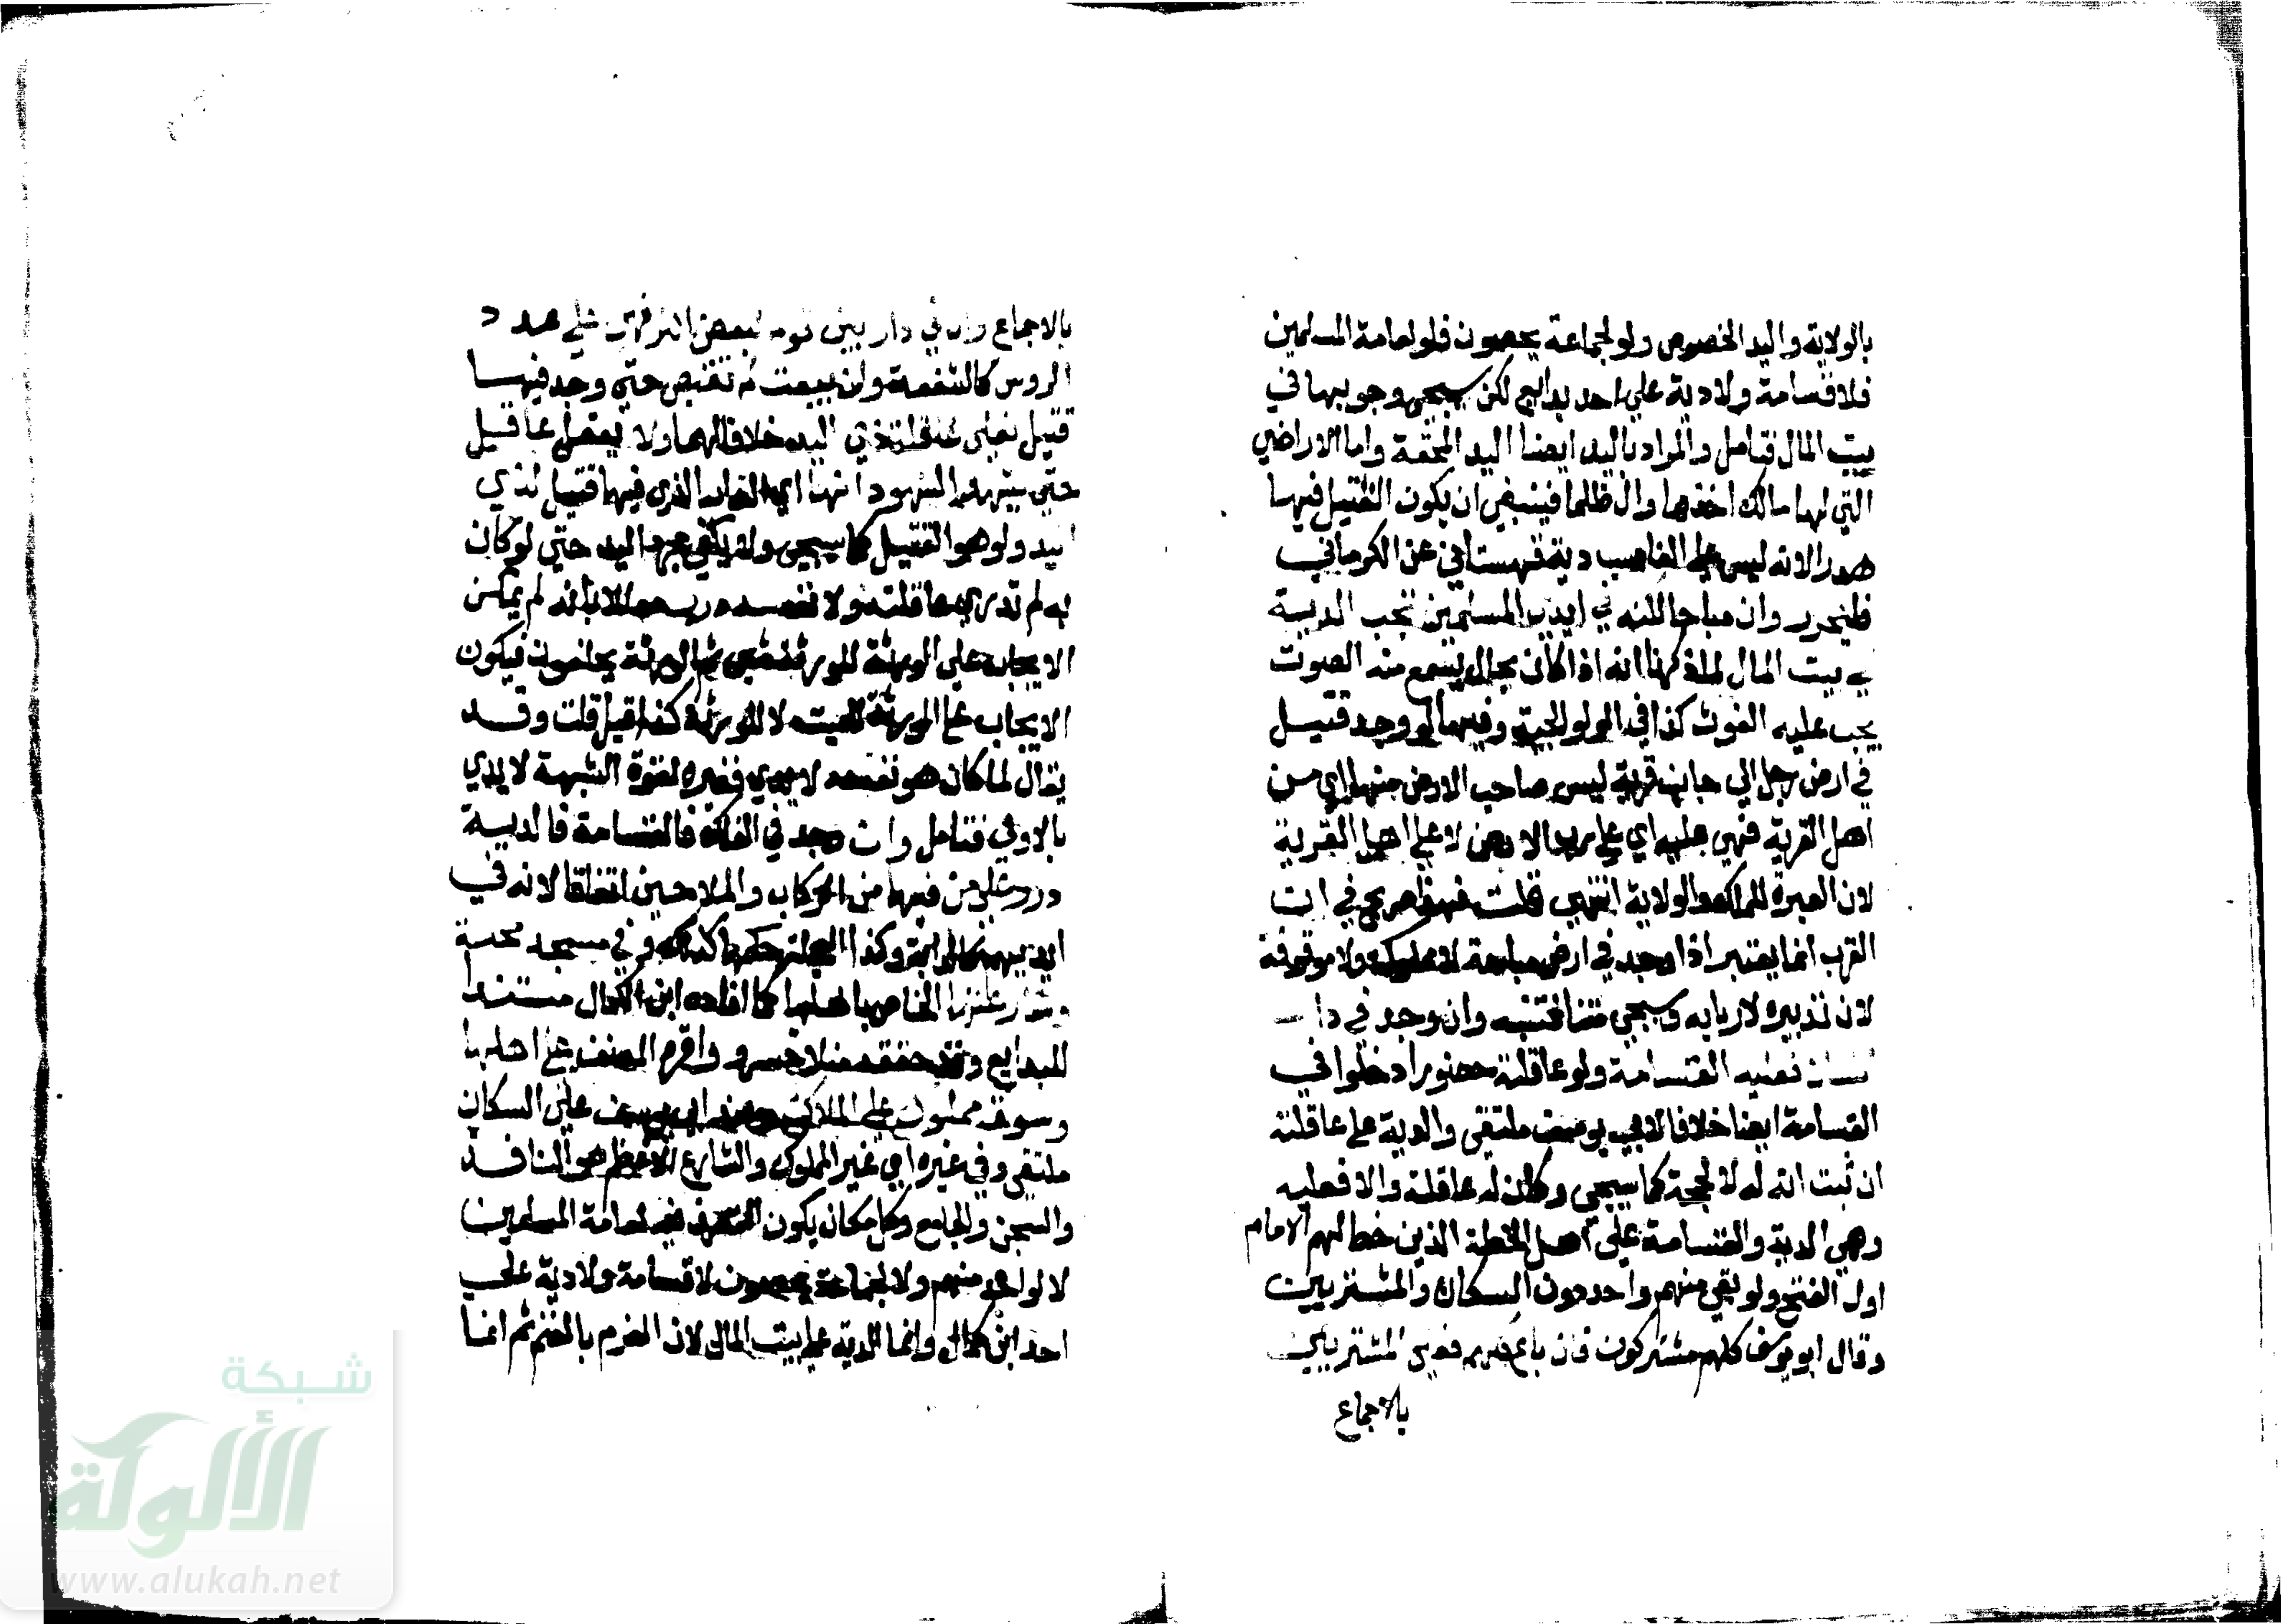 بالولاية واليد الخصوص ولو لجماعة يحصون فلو لعامة المسلمين
فلا قسامة ولا دية علي احد بدايع لكن سيجي وجوبها في
بيت المال فتامل والمراد باليد ايضا اليد المحقة واما الاراضي
التي لها مالك اخذها وال ظلما فينبغي ان يكون القتيل فيها
هدرا لانه ليس علي الغاصب دية قهستاني عن الكرماني
فليحرر وان مباحا لكنه في ايدي المسلمين تجب الدية
في بيت المال لما ذكرنا انه اذا كان بحال يسمع منه الصوت
يجب عليه الغوث كذا في الولوالجية وفيها لو وجد قتيل
في ارض رجل الي جانب قرية ليس صاحب الارض منها اي من
اهل القرية فهي عليه اي علي رب الارض لا علي اهل القرية
لان العبرة للملك والولاية انتهي قلت فهو صريح في ان
القرب انما يعتبر اذا وجد في ارض مباحة لا مملوكة ولا موقوفة
لان تدبيره لاربابه وسيجي متنا فتنبه وان وجد في دار
انسان فعليه القسامة ولو عاقلته حضورا دخلوا في
القسامة ايضا خلافا لابي يوسف ملتقي والدية علي عاقلته
ان ثبت انه له لا لحجة كما سيجي وكان له عاقلة والا فعليه
وهي الدية والقسامة علي اهل الخطة الذين خط لهم الامام
اول الفتح ولو بقي منهم واحد دون السكان والمشتريين
وقال ابو يوسف كلهم مشتركون فان باع كلهم فعلي المشتريين
بالاجماع
بالاجماع وان في دار بين قوم لبعض اكثر فهي علي عدد
الروس كالشفعة وان بيعت لم تقبض حتي وجد فيها
قتيل فعلي عاقلة ذي اليد خلافا لهما ولا يعقل عاقل
حتي يشهد الشهود انها اي الدار الذي فيها قتيل لذي
اليد ولو هو القتيل كما سيجي ولا يكفي مجرد اليد حتي لو كان
به لم تدي عاقلته ولا نفسه لانه لم يمكن
الايجاب علي الورثة للورثة يخلفونه فيكون
الايجاب علي الورثة للميت لا للورثة كذا قيل قلت وقد
يقال لما كان هو نفسه لا يدي فغيره لقوة الشبهة لا يدي
بالاولي فتامل وان وجد في الفلك فالقسامة فالدية
علي من فيها من الركاب والملاحين اتفاقا لانه في
ايديهم كالدابة وكذا العجلة حكمها كذلك وفي مسجد محلة
وشارعها الخاص باهلها كما افاده ابن الكمال مستندا
للبدايع وقد حققه منلا خسرو واقره المصنف علي اهلها
وسوق مملوك علي الملاك وعند ابي يوسف علي السكان
ملتقي وفي غيره اي غير المملوك والشارع الاعظم هو النافذ
والسجن والجامع وكل مكان يكون التصرف فيه لعامة المسلمين
لا لواحد منهم ولا لجماعة يحصون لا قسامة ولا دية علي
احد ابن كمال وانما الدية علي بيت المال لان الغرم بالغنم ثم انما
شبكة
الألوكة
www.alukah.net